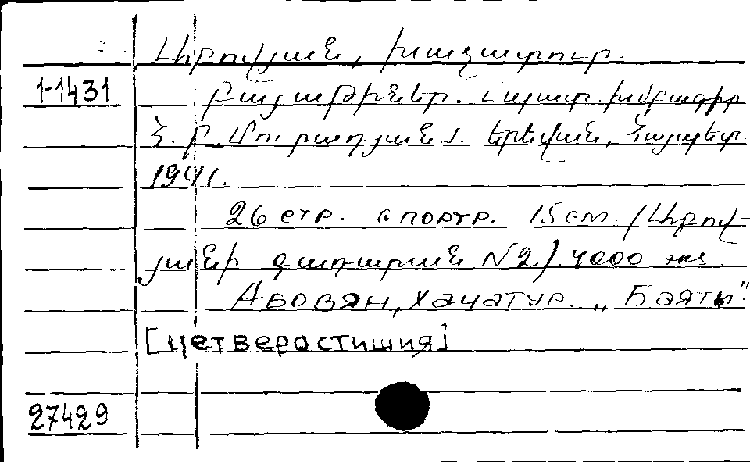 Աբովյան, Խաչատուր.
1-1431
Բայաթիներ. պատ. խմբագիր
Հ. Ր. Մուրադյան. Երևան, Հայպետ
1941.
26 стр. с портр. 15 см. (Աբով-
յանի գրադարան N2). 4000 экз.
Абовян, Хачатур. „Баяты"
[четверостишия]
27429